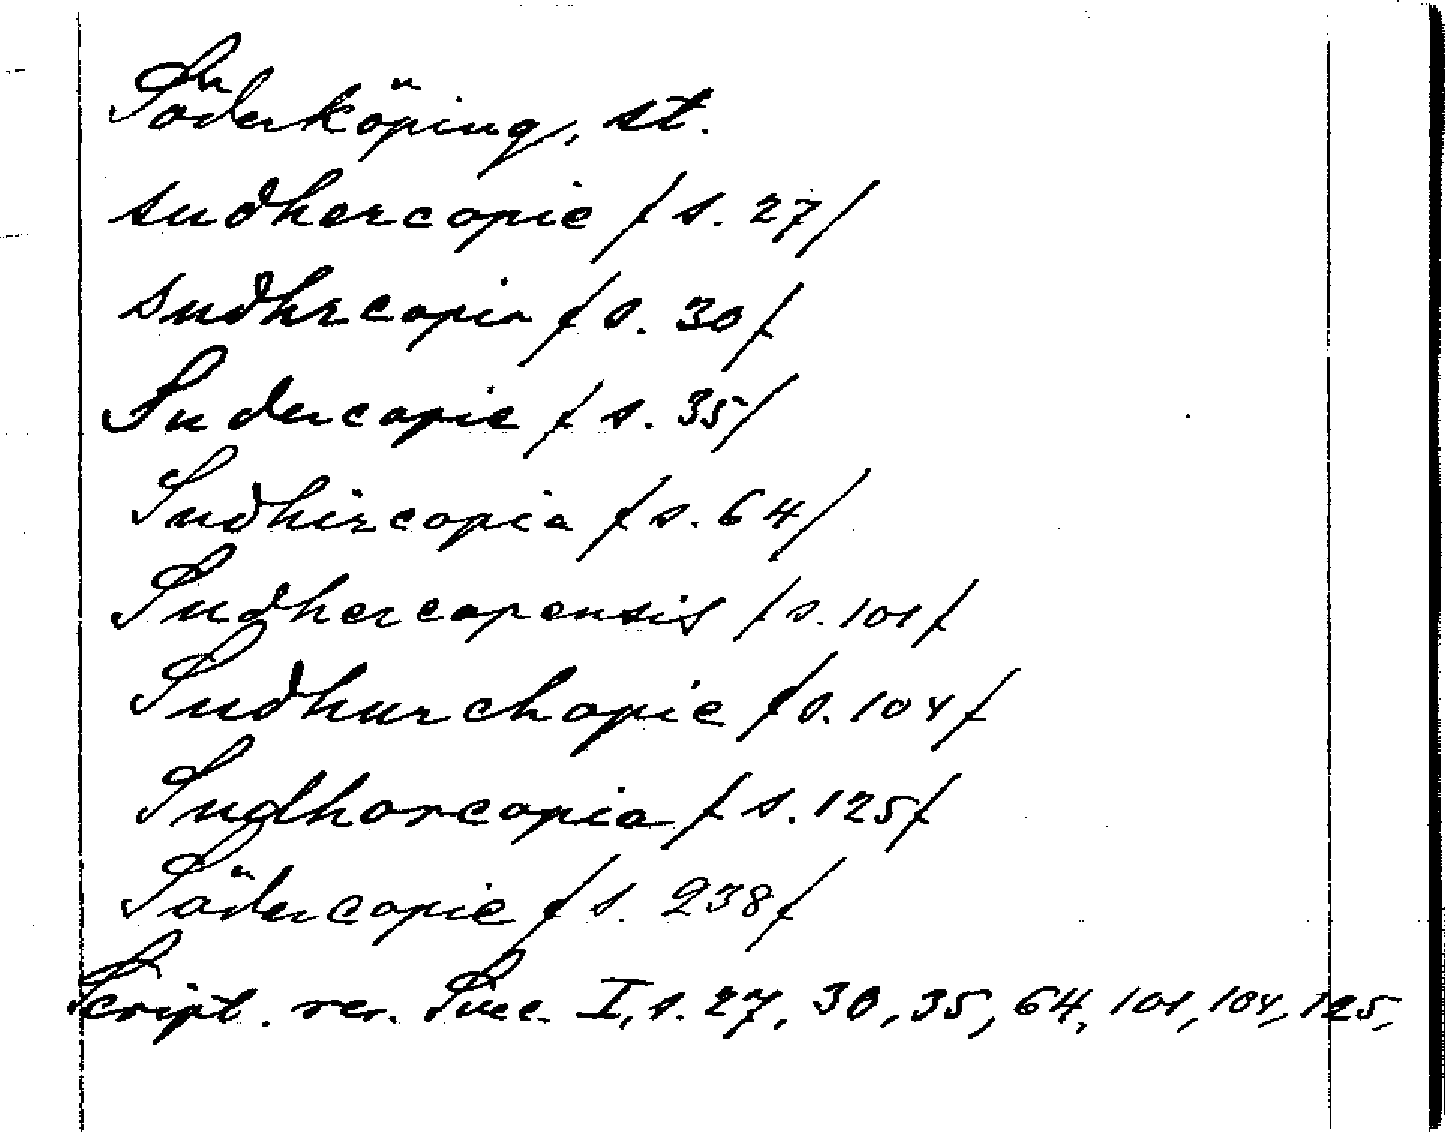 Söderköping, st.
sudhercopie / s. 27/
sudhrcopia / s. 30/
Sudercopie / s. 35/
Sudhircopia / s. 64/
Sudhercopensis / s. 101/
Sudhurchopie / s. 104/
Sudhorcopia / s. 125/
Södercopie / s. 238/
Script. rer. Suec. I, s. 27, 30, 35, 64, 101, 104, 125,